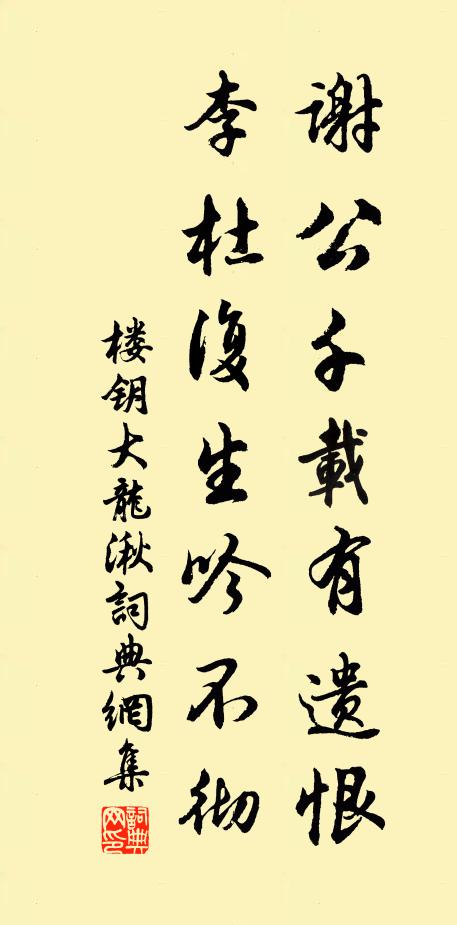 謝公千載有遺恨
李杜復生吟不彻
楼钥大龍湫詞典網集
詞典
网印